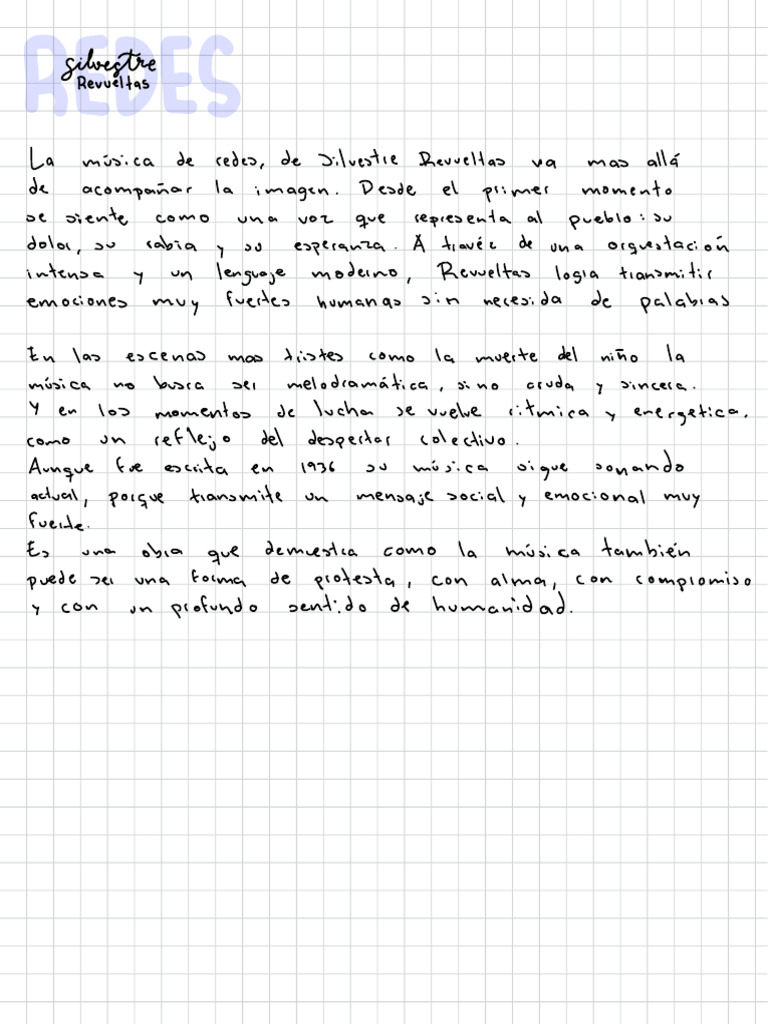 REDES
Silvestre
Revueltas
La música de redes, de Silvestre Revueltas va mas allá
de acompañar la imagen. Desde el primer momento
se siente como una voz que representa al pueblo: su
dolor, su rabia y su esperanza. A travéz de una orquestación
intensa y un lenguaje moderno, Revueltas logra transmitir
emociones muy fuertes humanas sin necesida de palabras
En las escenas mas tristes como la muerte del niño la
música no busca ser melodramática, sino cruda y sincera.
Y en los momentos de lucha se vuelve ritmica y energetica,
como un reflejo del despertar colectivo.
Aunque fue escrita en 1936 su música sigue sonando
actual, porque transmite un mensaje social y emocional muy
fuerte.
Es una obra que demuestra como la música también
puede ser una forma de protesta, con alma, con compromiso
y con un profundo sentido de humanidad.